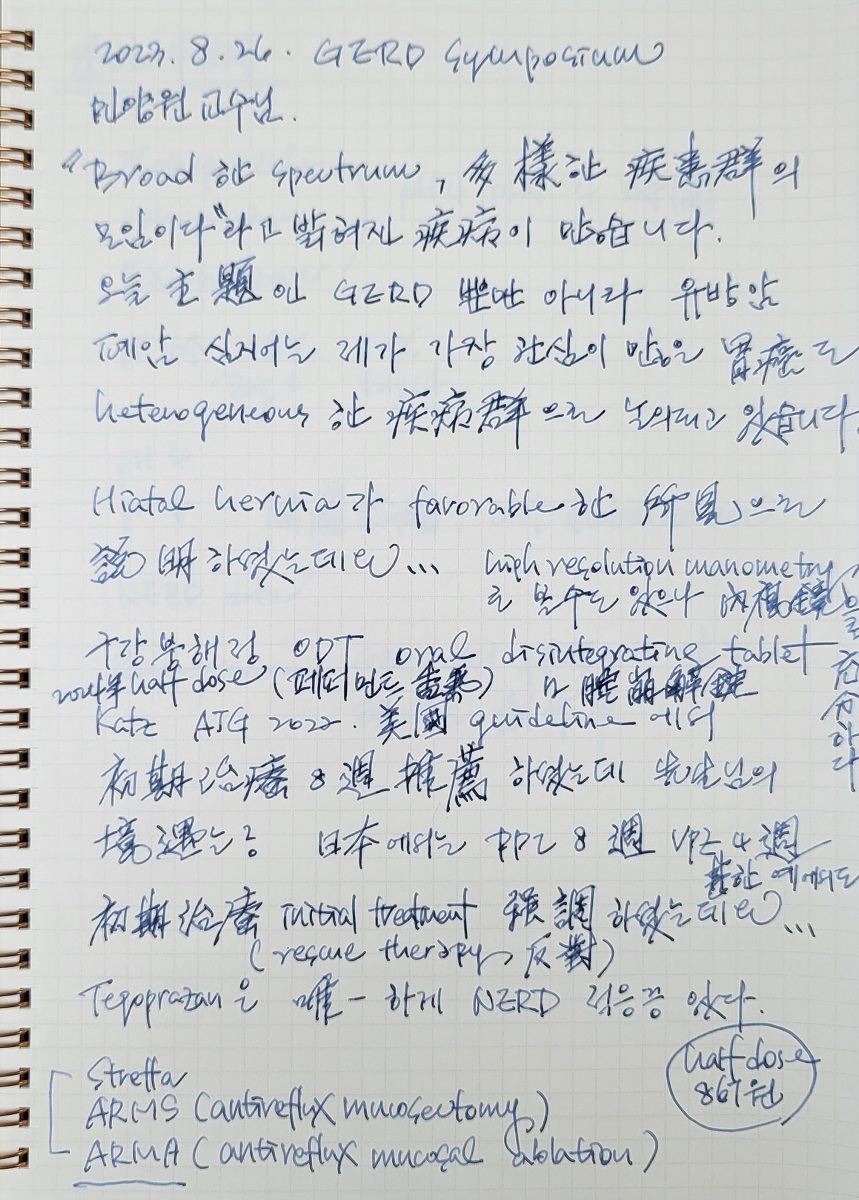 2023. 8. 26. GERD Symposium
민양원 교수님.
"Broad 한 spectrum, 多樣한 疾患群의
모임이다"라고 밝혀진 疾病이 많습니다.
오늘 主題인 GERD 뿐만 아니라 유방암
폐암 심지어는 제가 가장 관심이 많은 胃癌도
heterogeneous 한 疾病群으로 논의되고 있습니다.
Hiatal hernia가 favorable한 所見으로
說明하였는데요...
high resolution manometry
로 볼수도 있으나 內視鏡
으로 充分하다
구강붕해정 ODT oral disintegrating tablet
2024年 half dose (페퍼민트 香) 口腔崩解錠
Katz AJG 2022. 美國 guideline에서
初期治療 8週 推薦하였는데 先生님의
境遇는? 日本에서는 PPI 8週 VPZ 4週
한 예에서도
初期治療 initial treatment 强調하였는데요...
(rescue therapy, 反對)
Tegoprazan은 唯一하게 NERD 적응증 있다.
half dose
867원
Stretta
ARMS (antireflux mucosectomy)
ARMA (antireflux mucosal ablation)